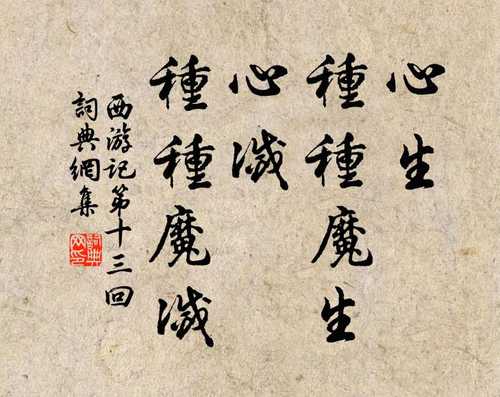 心生
種種魔生
心滅
種種魔滅
西游记第十三回
詞典網集
詞典
网印